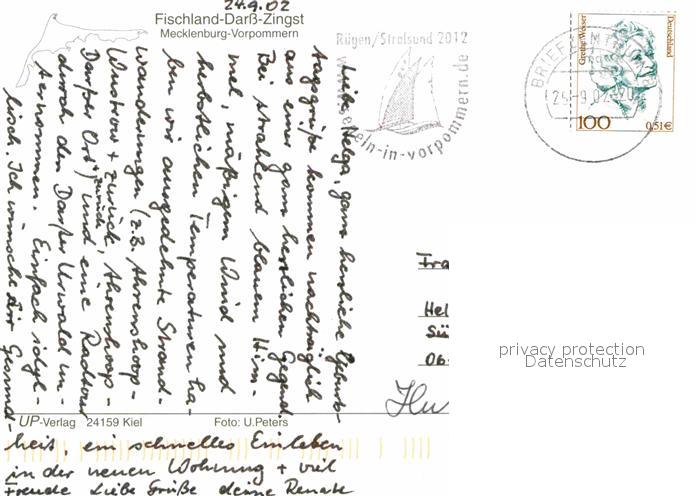 24.9.02
Fischland-Darß-Zingst
Mecklenburg-Vorpommern
Rügen/Stralsund 2012
www.segeln-in-vorpommern.de
BRIEFZENTRUM
25.-9.02
Grethe Weiser
Deutschland
100
0,51€
Liebe Helga, ganz herzliche Geburts-
tagsgrüße kommen nachträglich
aus einer ganz herrlichen Gegend.
Bei strahlend blauem Him-
mel, mäßigem Wind und
herbstlichen Temperaturen ha-
ben wir ausgedehnte Strand-
wanderungen (z.B. Ahrenshoop -
Wustrow + zurück, Ahrenshoop -
Darßer Ort + zurück) und eine Radtour
durch den Darßer Urwald un-
ternommen. Einfach idyl-
lisch. Ich wünsche Dir Gesund-
heit, ein schnelles Einleben
in der neuen Wohnung + viel
Freude Liebe Grüße deine Renate
Fra
Hel
Sü
06
UP-Verlag 24159 Kiel Foto: U.Peters
privacy protection
Datenschutz